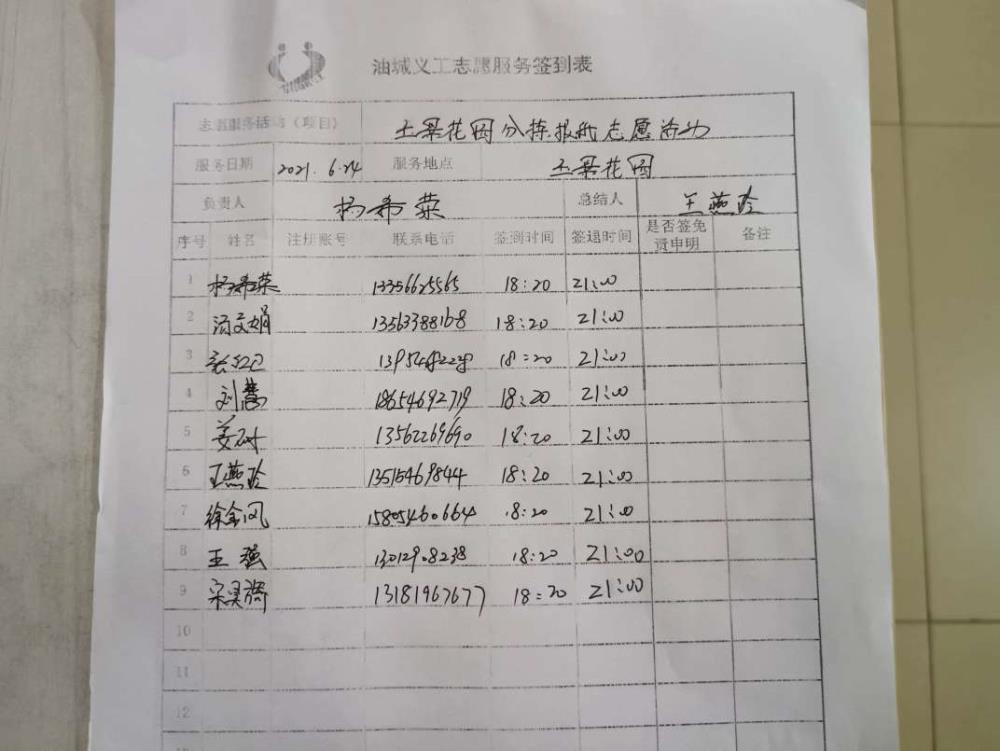 油城义工志愿服务签到表
志愿服务活动（项目） 土果花园分拣报纸志愿活动
服务日期 2021.6.24 服务地点 土果花园
负责人 杨希荣 总结人 王燕玲
序号 姓名 注册账号 联系电话 签到时间 签退时间 是否签免责申明 备注
1 杨希荣 13356625565 18:20 21:00
2 汤文娟 13563388168 18:20 21:00
3 张红卫 18:20 21:00
4 刘慧 18654692719 18:20 21:00
5 姜 13562269690 18:20 21:00
6 王燕玲 13515469844 18:20 21:00
7 徐金凤 15805460664 18:20 21:00
8 王强 18:20 21:00
9 宋 13181967677 18:20 21:00
10
11
12